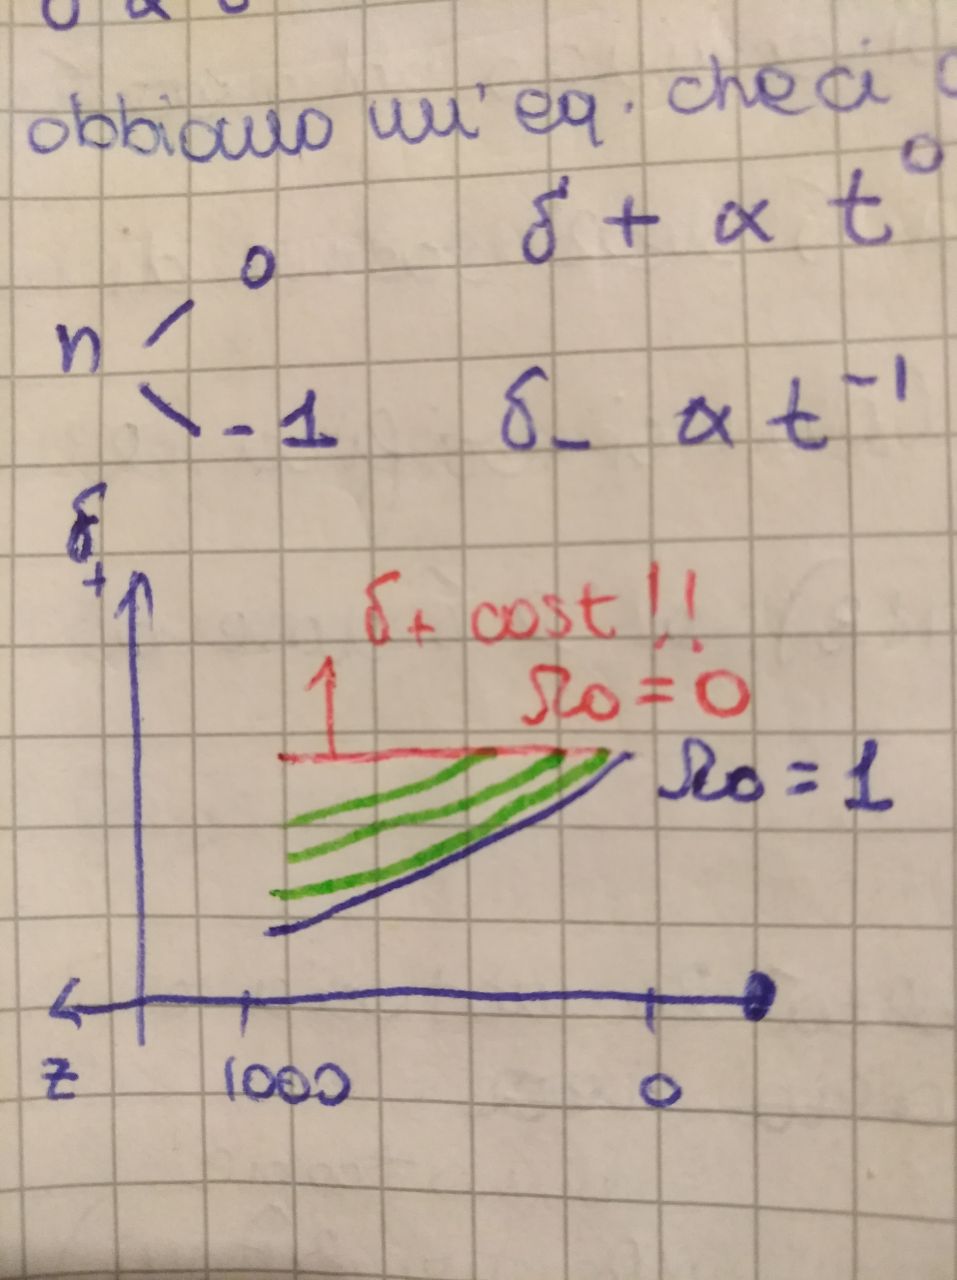 abbiamo un' eq. che ci
δ+ α t⁰
n
0
-1
δ- α t⁻¹
δ+
δ+ cost!!
Ω0 = 0
Ω0 = 1
z
1000
0